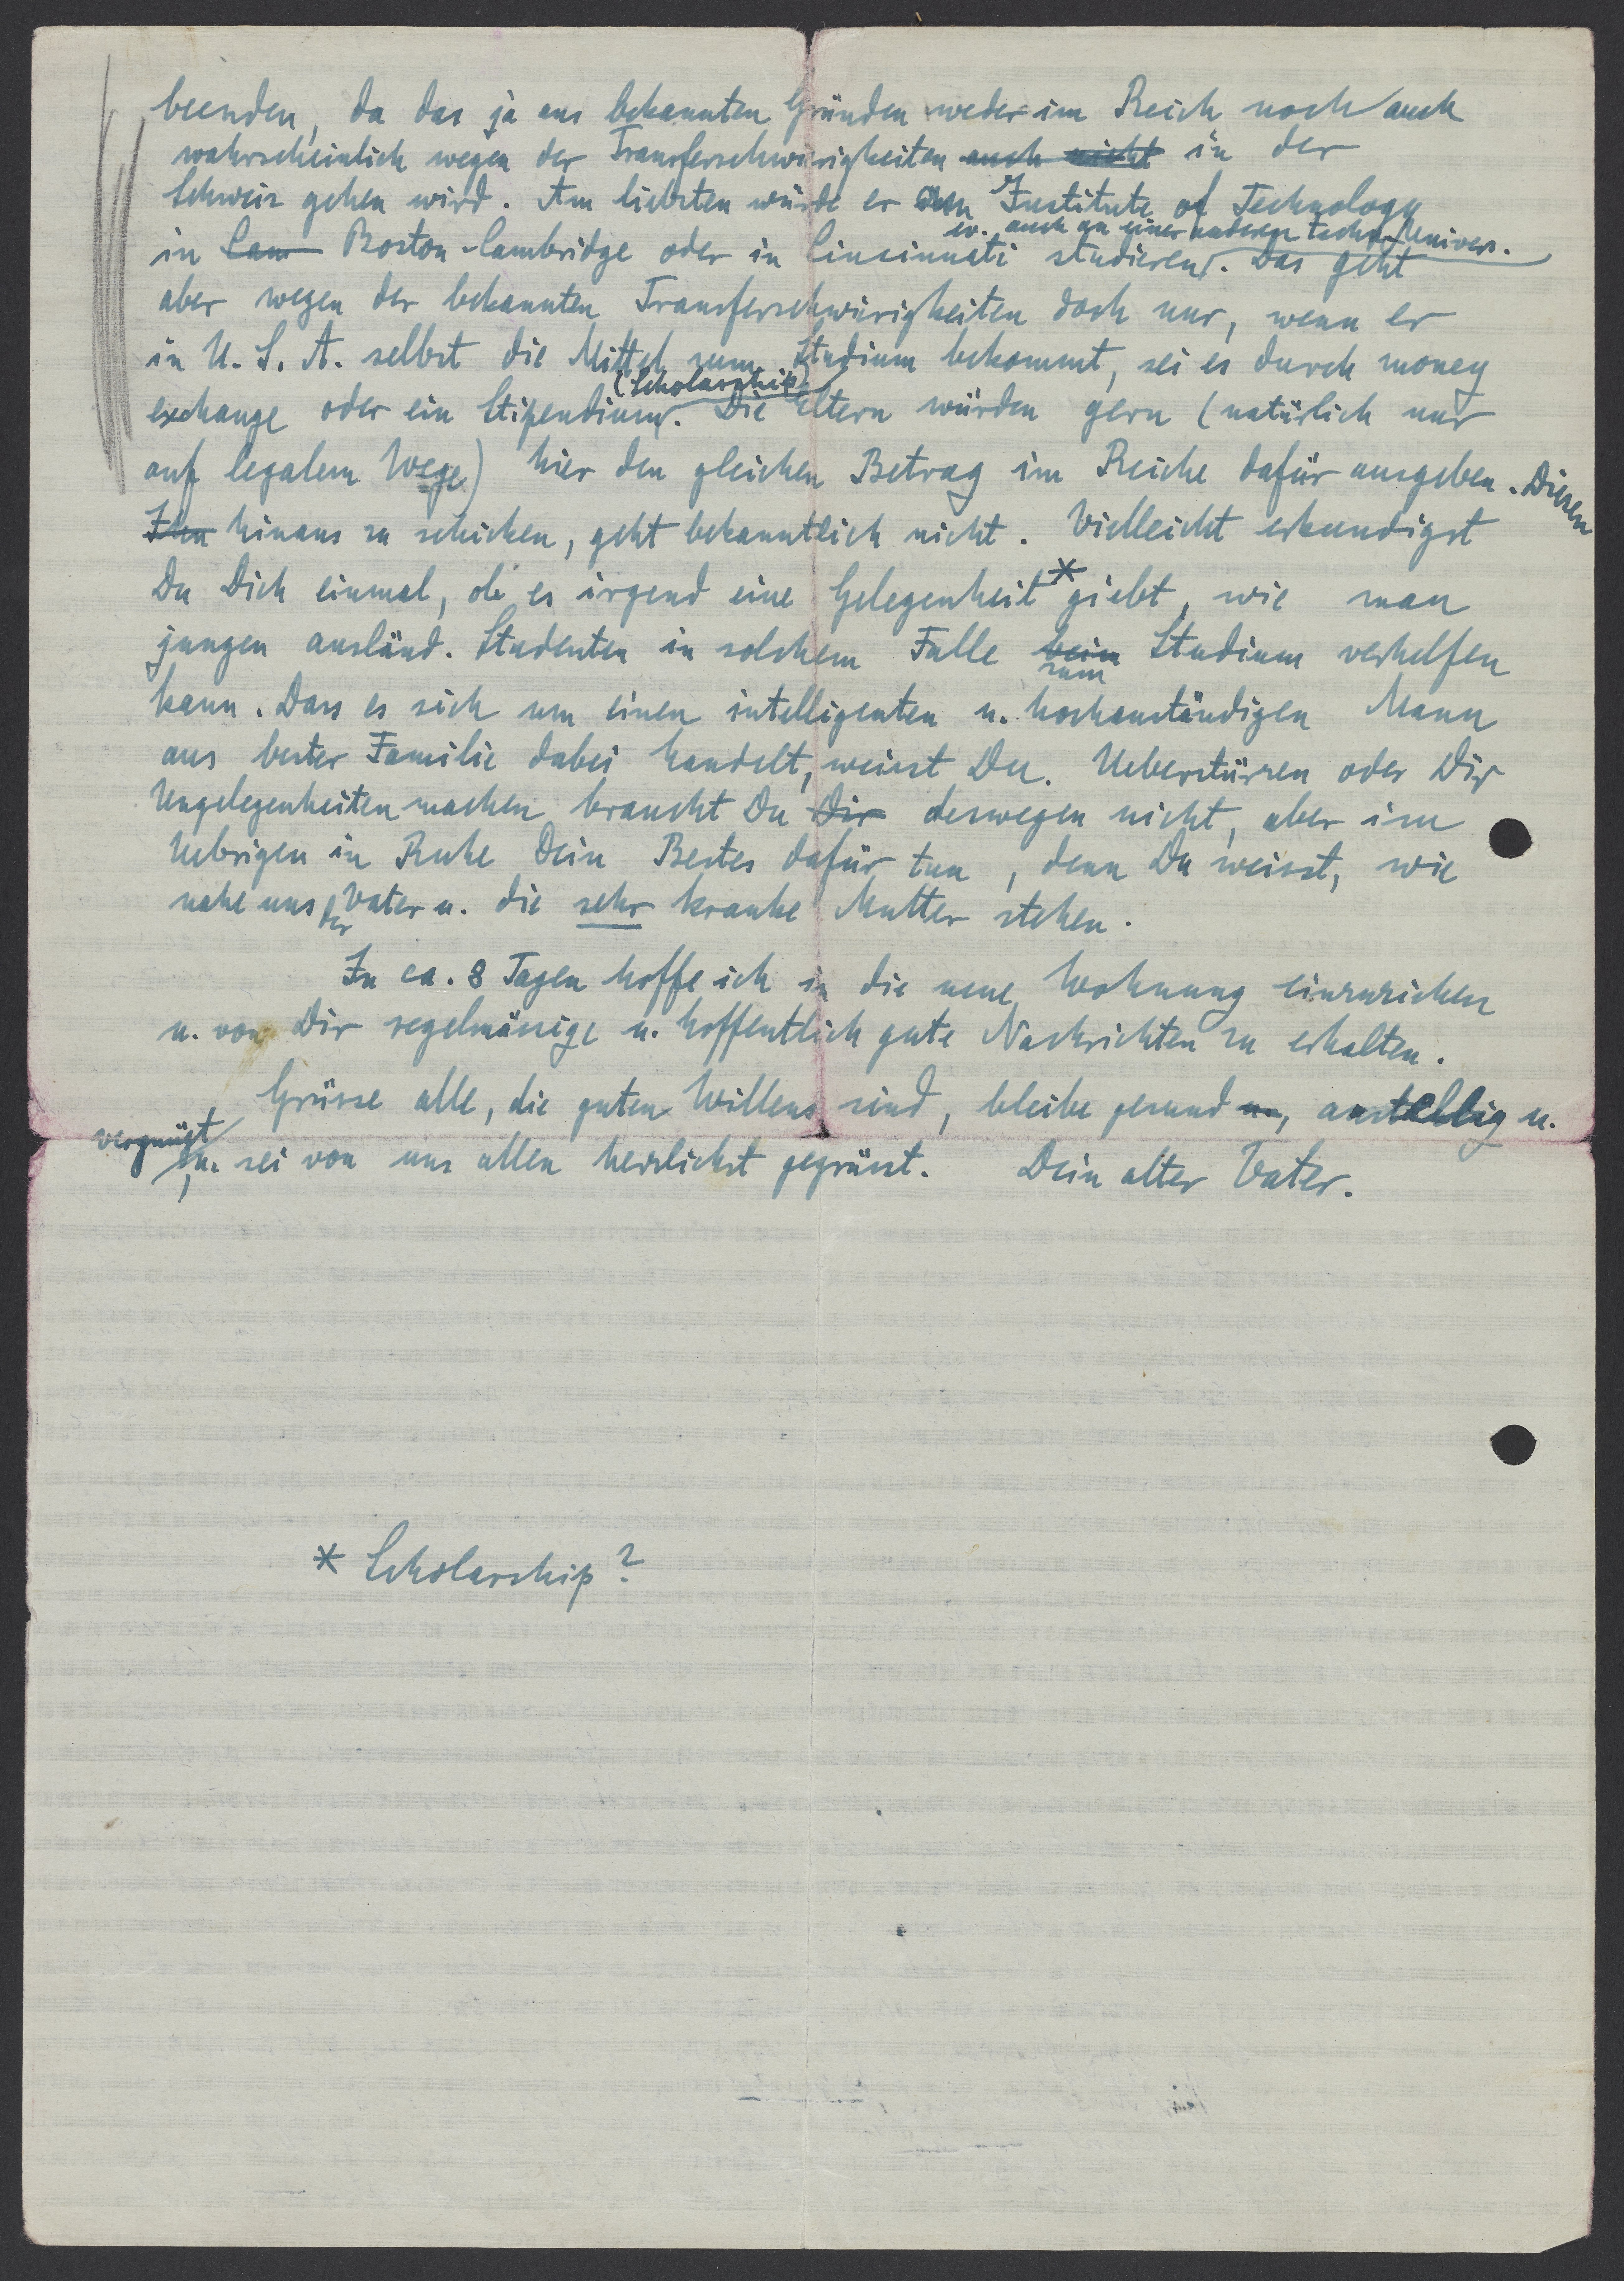 beenden, da das ja aus bekannten Gründen weder im Reich noch auch
wahrscheinlich wegen der Transferschwirigkeiten auch nicht in der
Schweiz gehen wird. Am liebsten würde er am Institute of Technology
ev. auch an einer anderen techn. Univers.
in Cam Boston-Cambridge oder in Cincinnati studieren. Das geht
aber wegen der bekannten Transferschwirigkeiten doch nur, wenn er
in U.S.A. selbst die Mittel zum Studium bekommt, sei es durch money
(Scholarship)
exchange oder ein Stipendium. Die Eltern würden gern (natürlich nur
auf legalem Wege) hier den gleichen Betrag im Reiche dafür ausgeben. Diesen
Ihn hinaus zu schicken, geht bekanntlich nicht. Vielleicht erkundigst
Du Dich einmal, ob es irgend eine Gelegenheit * giebt, wie man
jungen ausländ. Studenten in solchem Falle beim Studium verhelfen
zum
kann. Dass es sich um einen intelligenten u. hochanständigen Mann
aus bester Familie dabei handelt, weisst Du. Ueberstürzen oder Dir
Ungelegenheiten machen brauchst Du Dir deswegen nicht, aber im
Uebrigen in Ruhe Dein Bestes dafür tun, denn Du weisst, wie
nahe uns der Vater u. die sehr kranke Mutter stehen.
In ca. 8 Tagen hoffe ich in die neue Wohnung einzuziehen
u. von Dir regelmässige u. hoffentlich gute Nachrichten zu erhalten.
Grüsse alle, die guten Willens sind, bleibe gesund u., anstellig u.
vergnügt
, u. sei von uns allen herzlichst gegrüsst. Dein alter Vater.
* Scholarship?